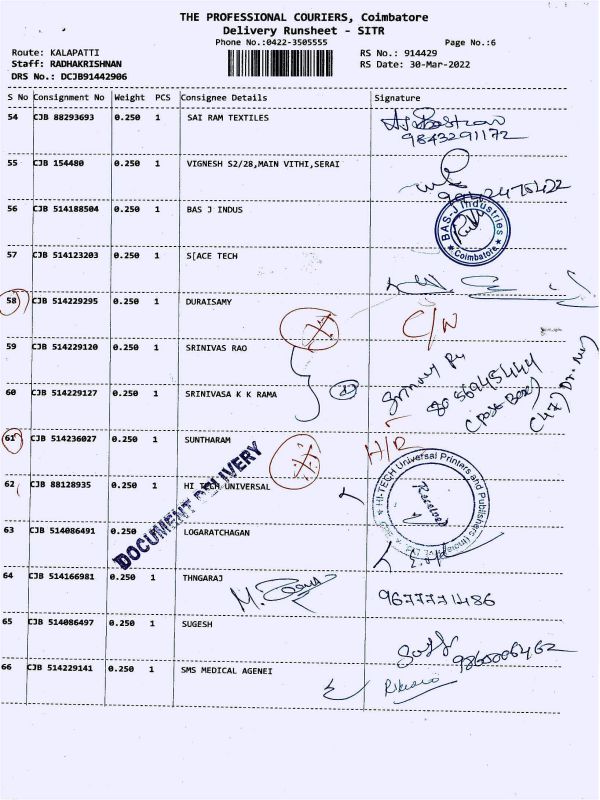 THE PROFESSIONAL COURIERS, Coimbatore
Delivery Runsheet - SITR
Phone No.:0422-3505555
Page No.:6
Route: KALAPATTI
RS No.: 914429
Staff: RADHAKRISHNAN
RS Date: 30-Mar-2022
DRS No.: DCJB91442906
S No Consignment No Weight PCS Consignee Details Signature
54 CJB 88293693 0.250 1 SAI RAM TEXTILES
9843291172
55 CJB 154480 0.250 1 VIGNESH S2/28,MAIN VITHI,SERAI
56 CJB 514188504 0.250 1 BAS J INDUS
BAS-J Industries
* Coimbatore *
57 CJB 514123203 0.250 1 S[ACE TECH
58 CJB 514229295 0.250 1 DURAISAMY
C/N
59 CJB 514229120 0.250 1 SRINIVAS RAO
60 CJB 514229127 0.250 1 SRINIVASA K K RAMA
61 CJB 514236027 0.250 1 SUNTHARAM
DOCUMENT DELIVERY
62 CJB 88128935 0.250 1 HI TECH UNIVERSAL
HI-TECH Universal Printers and Publishers
Received
63 CJB 514086491 0.250 LOGARATCHAGAN
64 CJB 514166981 0.250 1 THNGARAJ
9677771486
65 CJB 514086497 0.250 1 SUGESH
66 CJB 514229141 0.250 1 SMS MEDICAL AGENEI